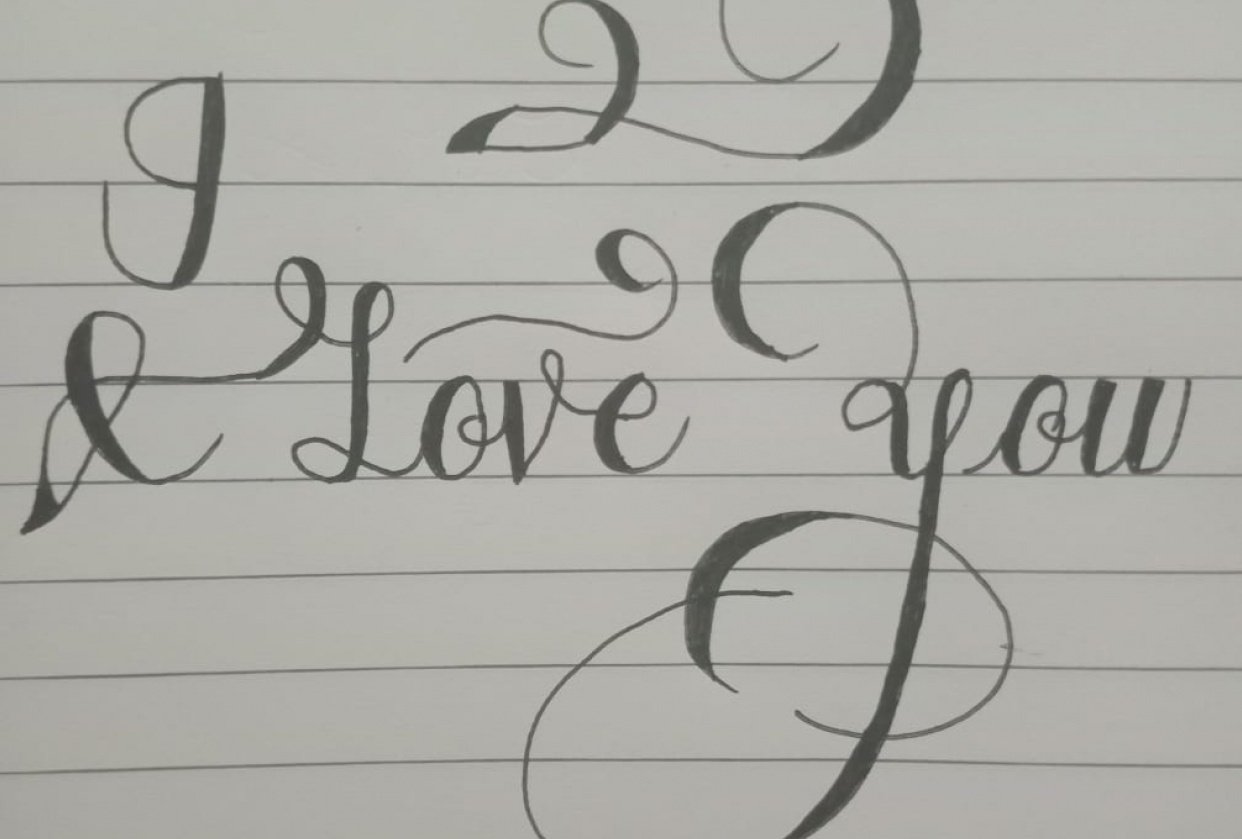 I
& Love you